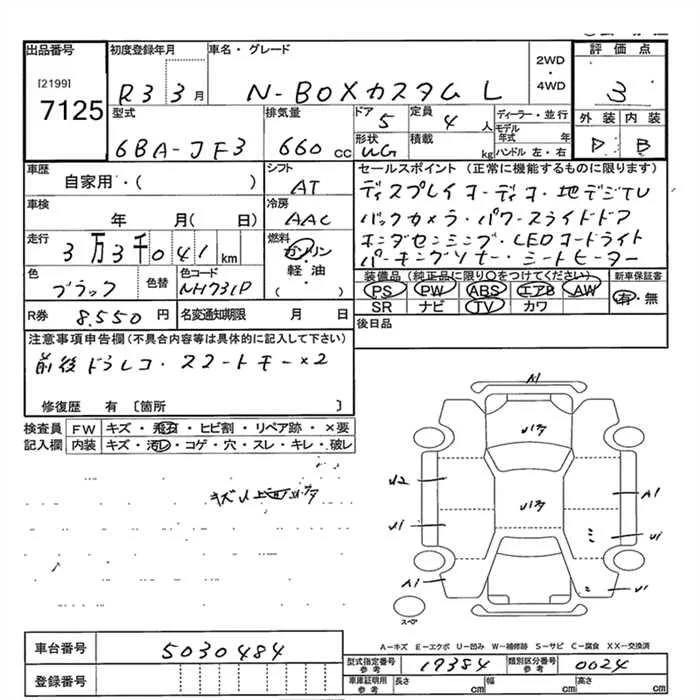 出品番号
[2199]
7125
初度登録年月
R3 3月
車名・グレード
N-BOXカスタム L
2WD
・
4WD
評価点
3
外装 内装
D B
型式
6BA-JF3
排気量
660 cc
ドア
5
定員
4 人
ディーラー・並行
モデル
年式 年
形状
WG
積載
kg
ハンドル 左・右
車歴
自家用・( )
シフト
AT
車検
年 月( 日)
冷房
AAC
走行
3万3千041 km
燃料
ガソリン
軽・油
( )
色
ブラック
色替
色コード
NH731P
R券
8.550 円
名変通知期限
月 日
セールスポイント (正常に機能するものに限ります)
ディスプレイオーディオ・地デジTV
バックカメラ・パワースライドドア
ホンダセンシング・LEDオートライト
パーキングソナー・シートヒーター
装備品 (純正品に限り○をつけてください)
PS PW ABS エアB AW
SR ナビ TV カワ
新車保証書
有・無
後日品
注意事項申告欄(不具合内容等は具体的に記入して下さい)
前後ドラレコ・スマートキー×2
修復歴 有 〔箇所 〕
検査員
記入欄
FW キズ・飛石・ヒビ割・リペア跡・×要
内装 キズ・汚レ・コゲ・穴・スレ・キレ・破レ
A1
U2
A1
U1
U1
A1
U1
スペア
A−キズ E−エクボ U−凹み W−補修跡 S−サビ C−腐食 XX−交換済
車台番号
5030484
登録番号
型式指定番号
参考
19384
類別区分番号
参考
0024
車庫証明用
参考
長さ cm
幅 cm
高さ cm